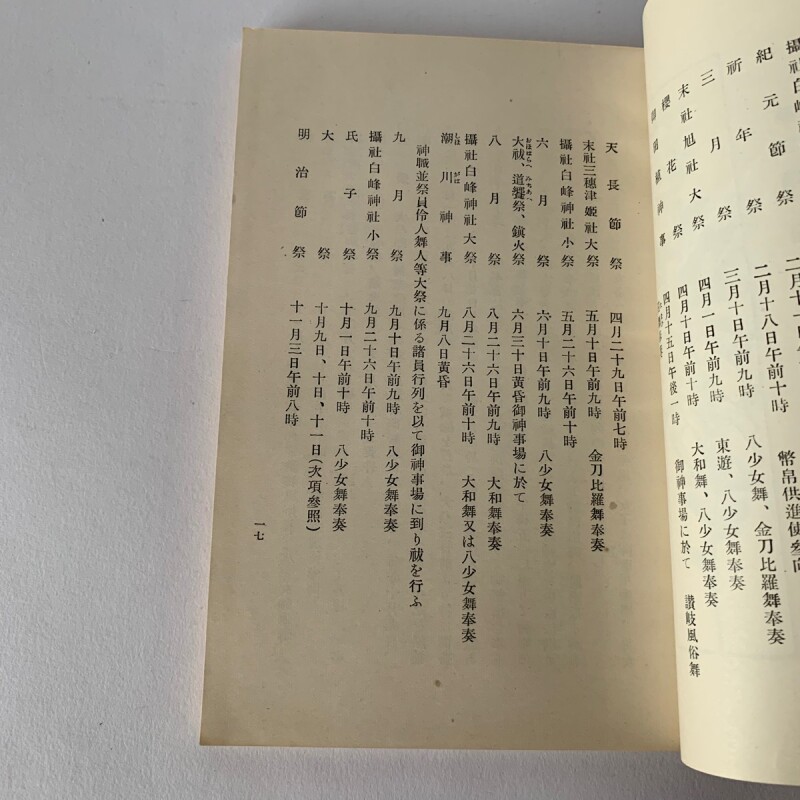 攝社白峰
紀元節祭 二月十一
祈年祭 二月十八日午前 幣帛供進使參向
三月祭 三月十日午前九時 八少女舞、金刀比羅舞奉奏
末社旭社大祭 四月一日午前九時 東遊、八少女舞奉奏
櫻花祭 四月十日午前九時 大和舞、八少女舞奉奏
神事 四月十五日午後一時 御神事場に於て 讃岐風俗舞
天長節祭 四月二十九日午前七時
末社三穗津姬社大祭 五月十日午前九時 金刀比羅舞奉奏
攝社白峰神社小祭 五月二十六日午前十時
六月祭 六月十日午前九時 八少女舞奉奏
大祓、道饗祭、鎭火祭 六月三十日黃昏御神事場に於て
おほはらへ みちあへ
八月祭 八月二十六日午前九時 大和舞奉奏
攝社白峰神社大祭 八月二十六日午前十時 大和舞又は八少女舞奉奏
潮川神事 九月八日黃昏
しほ がは
神職並祭員伶人舞人等大祭に係る諸員行列を以て御神事場に到り祓を行ふ
九月祭 九月十日午前九時 八少女舞奉奏
攝社白峰神社小祭 九月二十六日午前十時
氏子祭 十月一日午前十時 八少女舞奉奏
大祭 十月九日、十日、十一日(次項參照)
明治節祭 十一月三日午前八時
一七